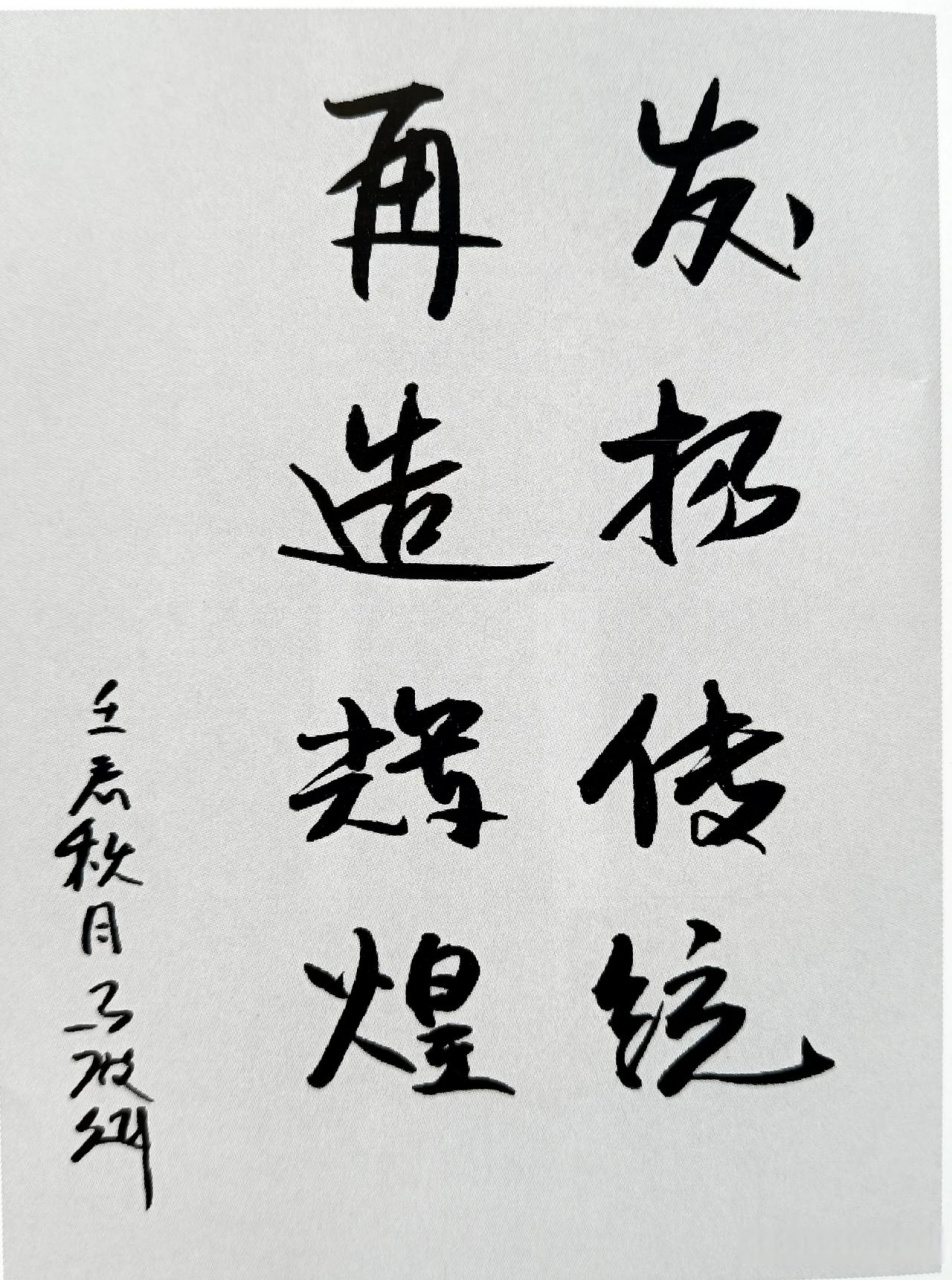 发扬传统
再造辉煌
壬君秋月马波